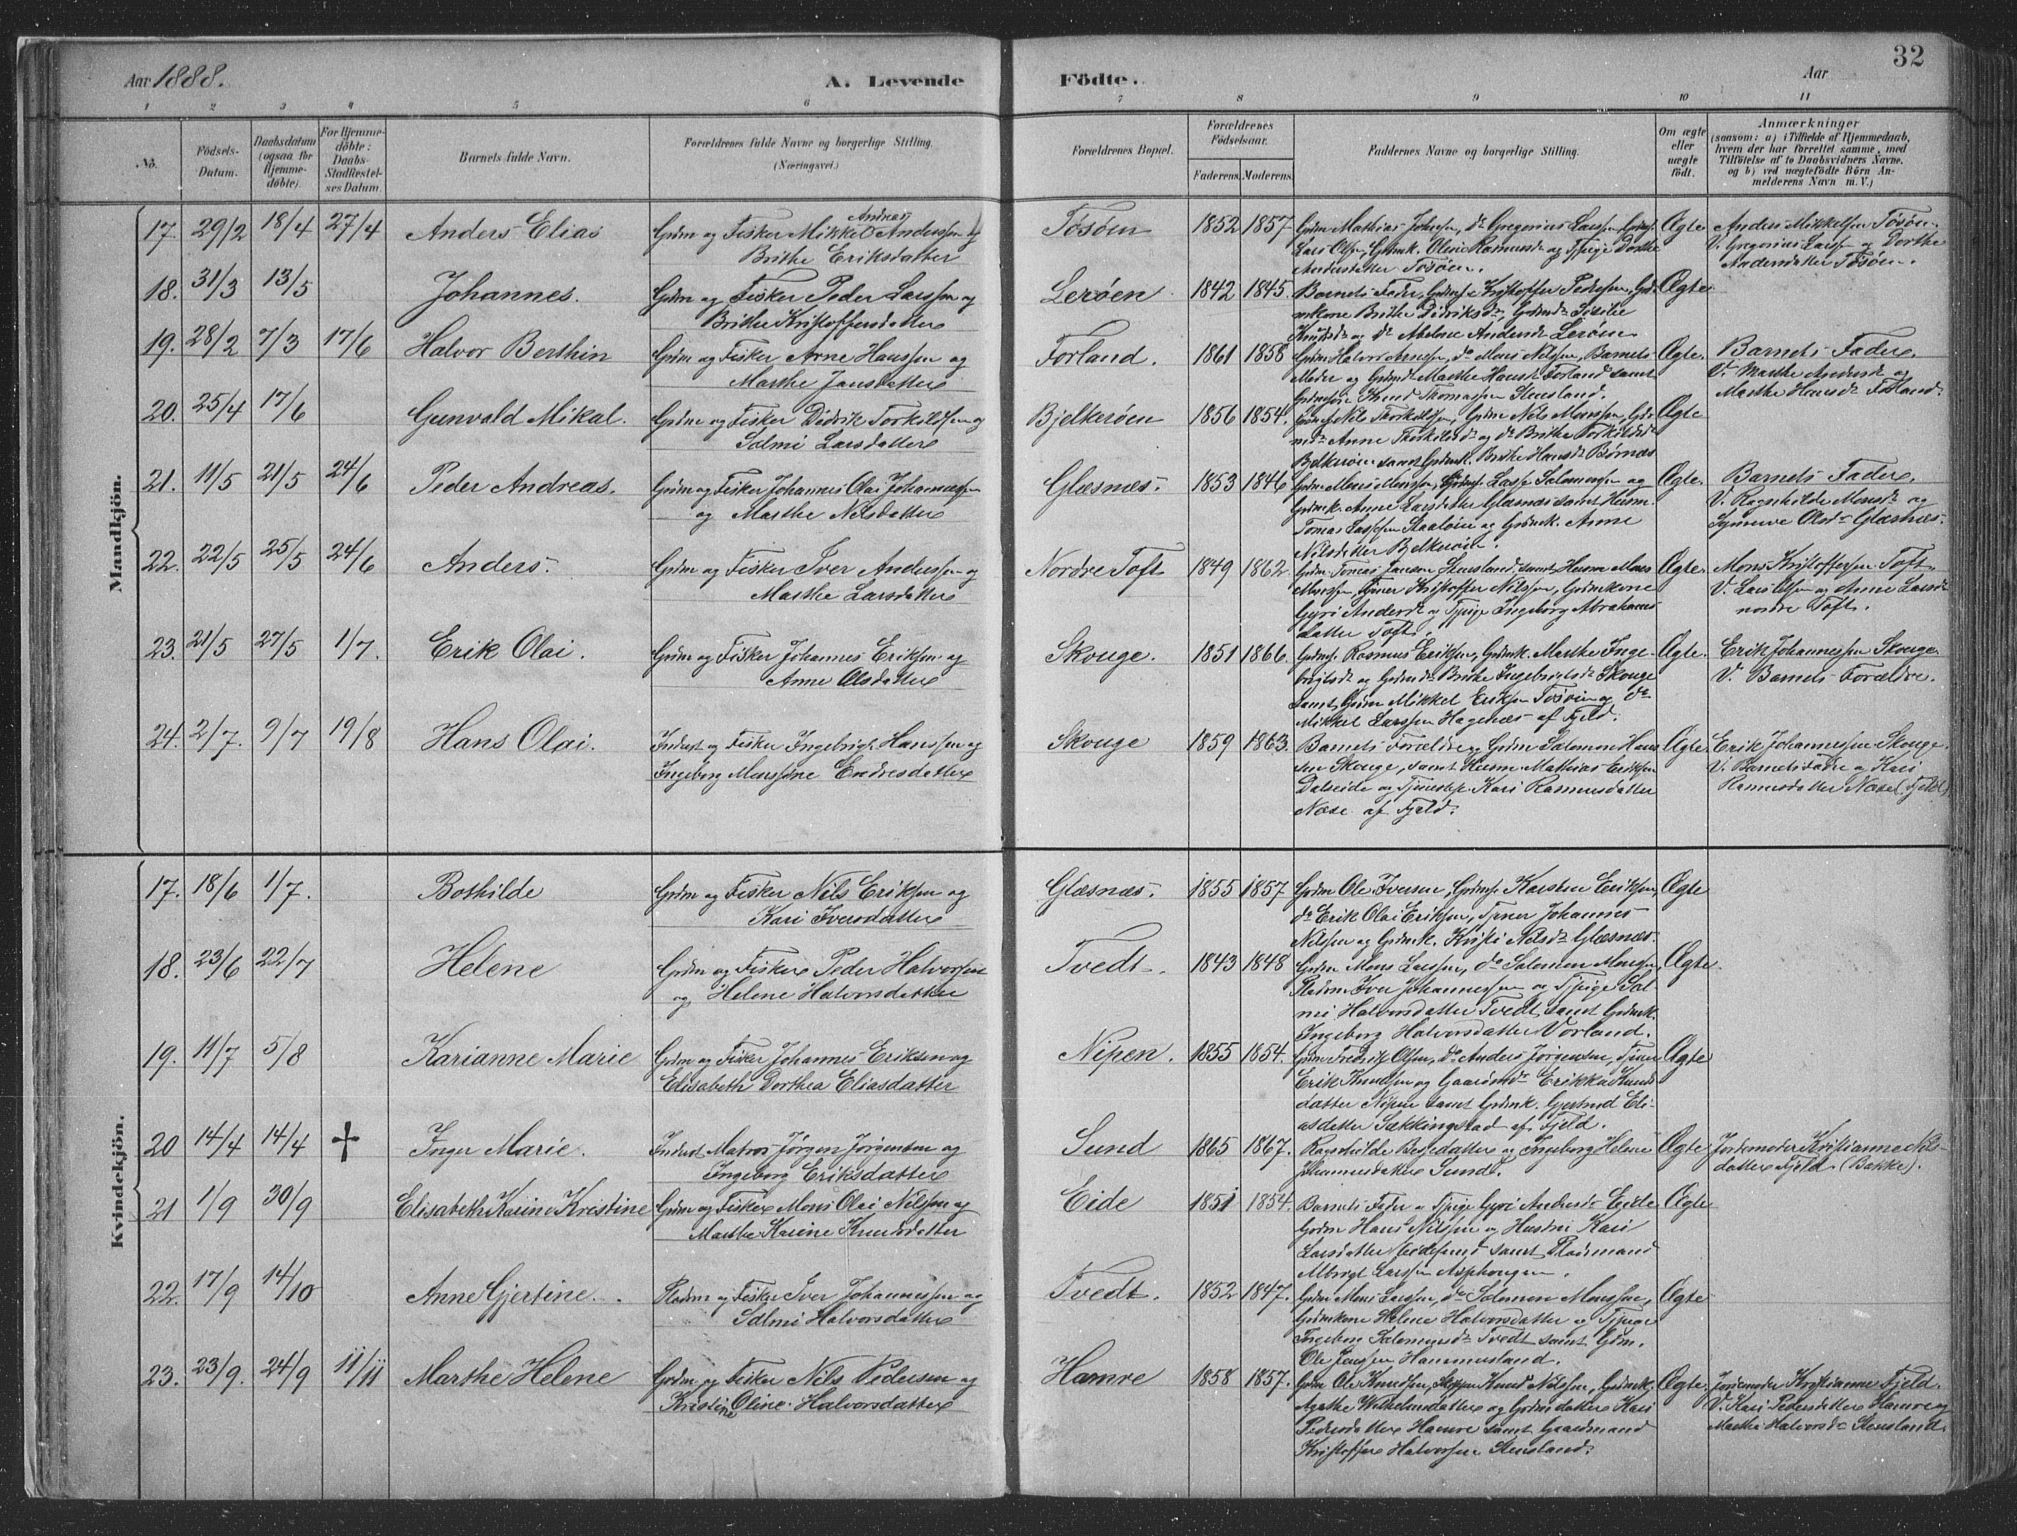 32
Aar 1888.
A. Levende Födte.
Aar
1 2 3 4 5 6 7 8 9 10 11
No.
Födsels-Datum.
Daabsdatum (ogsaa for Hjemme-döbte).
For Hjemme-döbte: Daabs-Stadfæstel-ses Datum
Barnets fulde Navn.
Forældrenes fulde Navne og borgerlige Stilling. (Næringsvei.)
Forældrenes Bopæl.
Forældrenes Födselsaar.
Faderens. Moderens.
Faddernes Navne og borgerlige Stilling.
Om ægte eller uægte födt.
Anmærkninger
(saasom: a) i Tilfælde af Hjemmedaab, hvem der har forrettet samme, med Tilföielse af to Daabsvidners Navne. og b) ved uægtefödte Börn Anmelderens Navn m. V.)
Mandkjön.
17. 29/2 18/4 27/4 Anders Elias
Grdm og Fisker Mikkel Andreas Anderssen og
Brithe Eriksdatter
Tösöen 1852 1857
Grdm Mathias Johnsen, do Gregorius Larssen, Grdms.
Lars Olsen, Grdmk. Oline Rasmusdr og Tjpige Dorthe
Andersdatter Tösöen.
Ægte
Anders Mikkelsen Tösöen
V. Gregorius Larssen og Dorthe
Andersdatter Tösöen.
18. 31/3 13/5 Johannes.
Grdm og Fisker Peder Larssen og
Brithe Kristoffersdatter
Leröen 1842 1845.
Barnets Fader, Grdms. Kristoffer Pedersen, Grd-
mkone Brithe Didriksdr, Grdmdr Sisilie
Knudsdr og do Ablone Andersdr Leröen
Ægte
19. 28/2 7/3 17/6 Halvor Berthin
Grdm og Fisker Arne Hanssen og
Marthe Jansdatter
Forland. 1861 1858
Grdm Halvor Arnesen, do Mons Nilssen, Barnets
Moder og Grdmdr Marthe Hansdr Forland samt
Grdmsön Knud Thomassen Steusland.
Ægte.
Barnets Fader.
V. Marthe Andersdr og
Marthe Hansdr Forland.
20. 25/4 17/6 Gunvald Mikal.
Grdm og Fisker Didrik Torkildsen og
Salmi Larsdatter
Bjelkeröen 1856 1854.
Grdm Nils Thorkildsen, Grdm Nils Monssen, Grd-
mdr Anne Thorkildsdr og do Brithe Torkildsdr
Bjelkeröen samt Grdmk. Brithe Hansdr Börnæs
Ægte
21. 11/5 21/5 24/6 Peder Andreas.
Grdm og Fisker Johannes Olai Johannessen
og Marthe Nilsdatter
Glæsnæs. 1853 1846
Grdm Mons Monssen, Grdms. Lasse Salomonsen og
Grdmk. Anne Larsdatter Glæsnæs samt Husm
Tomas Lassesen og Grdmk. Anne
Nilsdatter Bjelkeröen.
Ægte.
Barnets Fader.
V. Ragnhilde Monsdr og
Synneve Olsdr Glæsnæs.
22. 22/5 25/5 24/6 Anders.
Grdm og Fisker Iver Anderssen og
Marthe Larsdatter
Nordre Toft 1849 1862.
Grdm Tomas Jansen Steusland, samt Husm Mons
Monssen, Tjener Kristoffer Nilssen, Grdmkone
Gyri Andersdr og Tjpige Ingeborg Abrahams-
datter Toft.
Ægte.
Mons Kristoffersen Toft.
V. Lars Olsen og Anne Larsdr
nordre Toft.
23. 21/5 27/5 1/7. Erik Olai.
Grdm og Fisker Johannes Eriksen og
Anne Olsdatter
Skouge. 1851 1866.
Grdms. Rasmus Eriksen, Grdmk. Marthe Inge-
brigtsdr og Grdmdr Brithe Ingebrigtsdr Skouge
samt Grdm Mikkel Eriksen Tösöen og do
Mikkel Larssen Hagenæs af Fjeld.
Ægte.
Erik Johannessen Skouge.
V. Barnets Forældre.
24. 2/7. 9/7 19/8 Hans Olai.
Inderst og Fisker Ingebrigt Hanssen og
Ingeborg Monsine Endresdatter
Skouge 1859 1863.
Barnets Forældre og Grdm Salomon Hans-
sen Skouge, samt Husm Mathias Eriksen
Dalseide og Tjenestep. Kari Rasmusdatter
Næse af Fjeld.
Ægte
Erik Johannessen Skouge.
V. Barnets Fader og Kari
Rasmusdatter Næse (Fjeld)
Kvindekjön.
17. 18/6 1/7. Bothilde
Grdm og Fisker Nils Eriksen og
Kari Iversdatter
Glæsnæs. 1855 1857
Grdm Ole Iversen, Grdms. Karsten Eriksen,
do Erik Olai Eriksen, Tjener Johannes
Nilssen og Grdmk. Kristi Nilsdr Glæsnæs.
Ægte
18. 23/6 22/7 Helene
Grdm og Fisker Peder Halvorssen
og Helene Halvorsdatter
Tvedt. 1843 1848
Grdm Mons Larssen, do Salomon Monssen,
Pladsm Iver Johannessen og Tjpige Sal-
mi Halvorsdatter Tvedt samt Grdmk.
Ingeborg Halvorsdatter Vorland.
Ægte.
19. 11/7 5/8 Karianne Marie
Grdm og Fisker Johannes Eriksen og
Elisabeth Dorthea Eliasdatter
Nipen. 1855 1854.
Grdm Fredrik Olsen, do Anders Jörgensen, Tjener
Erik Knudsen og Gaardmdr Erikka Knuds-
datter Nipen samt Grdmk. Gjertrud Eli-
asdatter Sækkingstad af Fjeld.
Ægte
20 14/4 14/4 † Inger Marie.
Inderst Matros Jörgen Jörgensen og
Ingeborg Eriksdatter
Sund 1865 1867.
Ragnhilde Bertedatter og Ingeborg Helene
Johannesdatter Sund.
Ægte
Jordemoder Kristianne Nils-
datter Fjeld (Bakke).
21 1/9 30/9 Elisabeth Karine Kristine
Grdm og Fisker Mons Olai Nilssen og
Marthe Karine Knudsdatter
Eide 1851 1854.
Barnets Fader og Tjpige Gyri Andersdr Eide
Grdm Hans Nilssen og Hustru Kari
Larsdatter samt Pladsmand
Albrigt Larssen Nipehougen.
Ægte
22. 17/9 14/10 Anne Gjertine.
Pladsm og Fisker Iver Johannessen og
Salmi Halvorsdatter
Tvedt. 1852 1847.
Grdm Mons Larssen, do Salomon Monssen,
Grdmkone Helene Halvorsdatter og Tjpige
Ingeborg Salomonsdr Tvedt samt Grdm.
Ole Jenssen Hammersland.
Ægte
23. 23/9. 24/9 11/11 Marthe Helene
Grdm og Fisker Nils Pedersen og
Kristine Oline Halvorsdatter
Hamre 1858 1857.
Grdm Ole Knudsen, Knud Nilssen, Grdmk.
Agathe Wilhelmsdatter og Grdmdatter Kari
Pedersdatter Hamre samt Gaardmand
Kristoffer Halvorssen Steusland.
Ægte.
Jordemoder Kristianne Fjeld.
V. Kari Pedersdatter Hamre og
Marthe Halvorsdr Steusland.